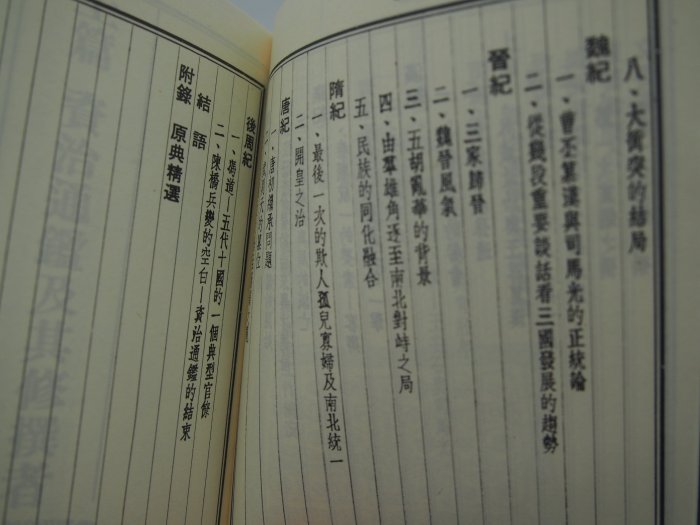 八、大衝突的結局
魏紀
一、曹丕篡漢與司馬光的正統論
二、從幾段重要談話看三國發展的趨勢
晉紀
一、三家歸晉
二、魏晉風氣
三、五胡亂華的背景
四、由羣雄角逐至南北對峙之局
五、民族的同化融合
隋紀
一、最後一次的欺人孤兒寡婦及南北統一
二、開皇之治
唐紀
一、唐初繼承問題
後周紀
一、馮道—五代十國的一個典型官僚
二、陳橋兵變的空白—資治通鑑的結束
結語
附錄 原典精選